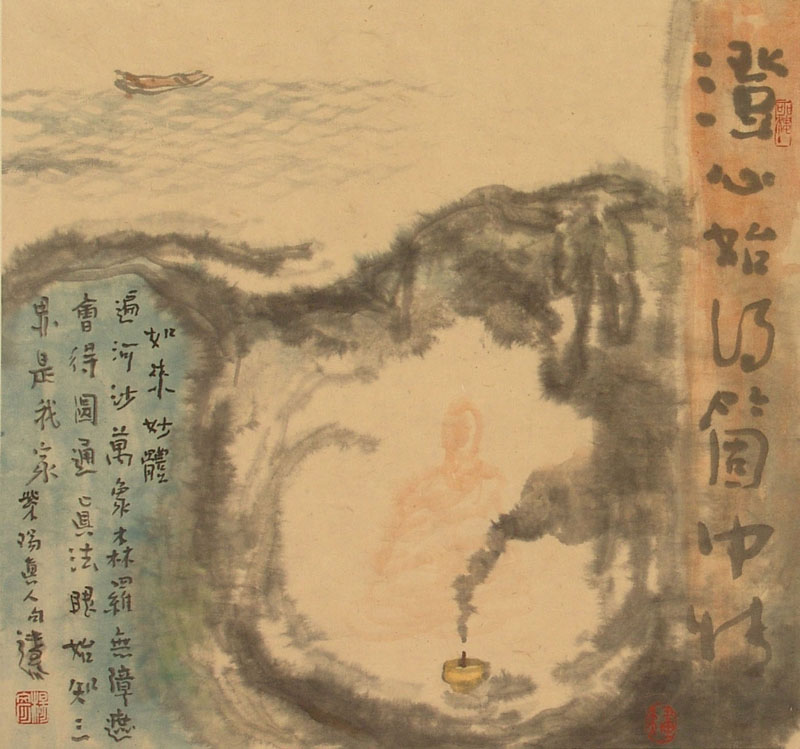 澄心始得箇中情
如來妙體
遍河沙萬象森羅無障遮
會得圓通眞法眼始知三
界是我家紫陽眞人句